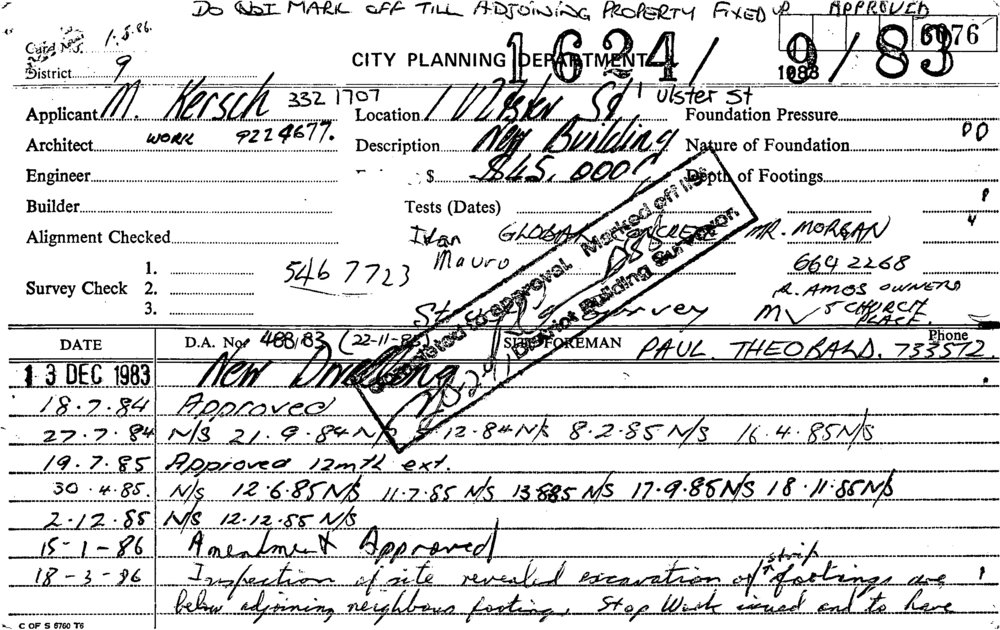 DO NOT MARK OFF TILL ADJOINING PROPERTY FIXED UP APPROVED
Card No. 1.8.86.
6076
District 9
CITY PLANNING DEPARTMENT
1624/9/83
1983
Applicant M. Kersch 332 1707
Location 1 Ulster St 1 Ulster St
Foundation Pressure
Architect WORK 9224677.
Description New Building
Nature of Foundation
Engineer
$ $45,000
Depth of Footings
Builder
Tests (Dates)
Alignment Checked
Ivan Mauro
GLOBAL CONCRETE MR. MORGAN
664 2268
Survey Check 1.
2.
3.
546 7723
R. AMOS OWNERS
5 CHURCH PLACE.
Survey
MV
Completed to approval. Marked off list
District Building Surveyor.
DATE
D.A. No. 488/83 (22-11-83)
SITE FOREMAN PAUL. THEOBALD.
Phone 733572.
13 DEC 1983 New Dwelling
18.7.84 Approved
27.7.84 N/S 21.9.84 N/S 12.84 N/S 8.2.85 N/S 16.4.85 N/S
19.7.85 Approved 12mth ext.
30.4.85. N/S 12.6.85 N/S 11.7.85 N/S 13.8.85 N/S 17.9.85 N/S 18.11.85 N/S
2.12.85 N/S 12.12.85 N/S
15-1-86 Amendment Approved
18-3-86 Inspection of site revealed excavation of strip footings are
below adjoining neighbours footing, Stop Work issued and to have
C OF S 5760 T6